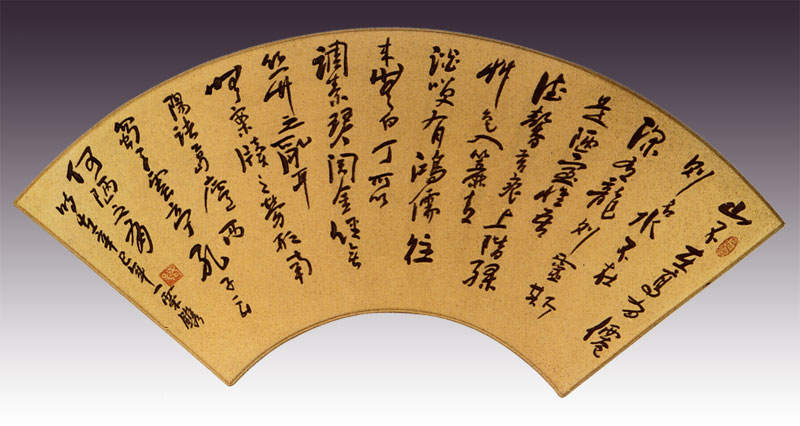 山不在高有僊
则名水不在
深有龍则靈斯
是陋室惟吾
德馨苔痕上階綠
草色入簾青
談笑有鴻儒往
来無白丁可以
調素琴閱金經無
丝竹之亂耳
無案牘之勞形南
陽諸葛廬西
蜀子雲亭孔子云
何陋之有
辛巳年